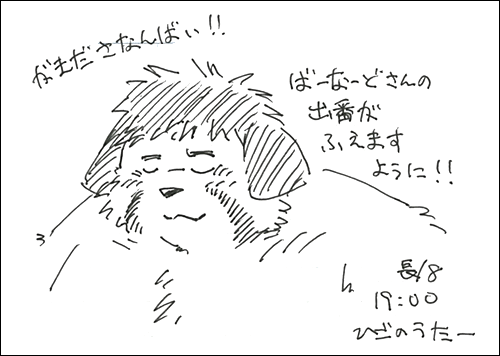 がまださなんばい!!
ばーなーどさんの
出番が
ふえます
ように!!
長18
19:00
ひごのうたー